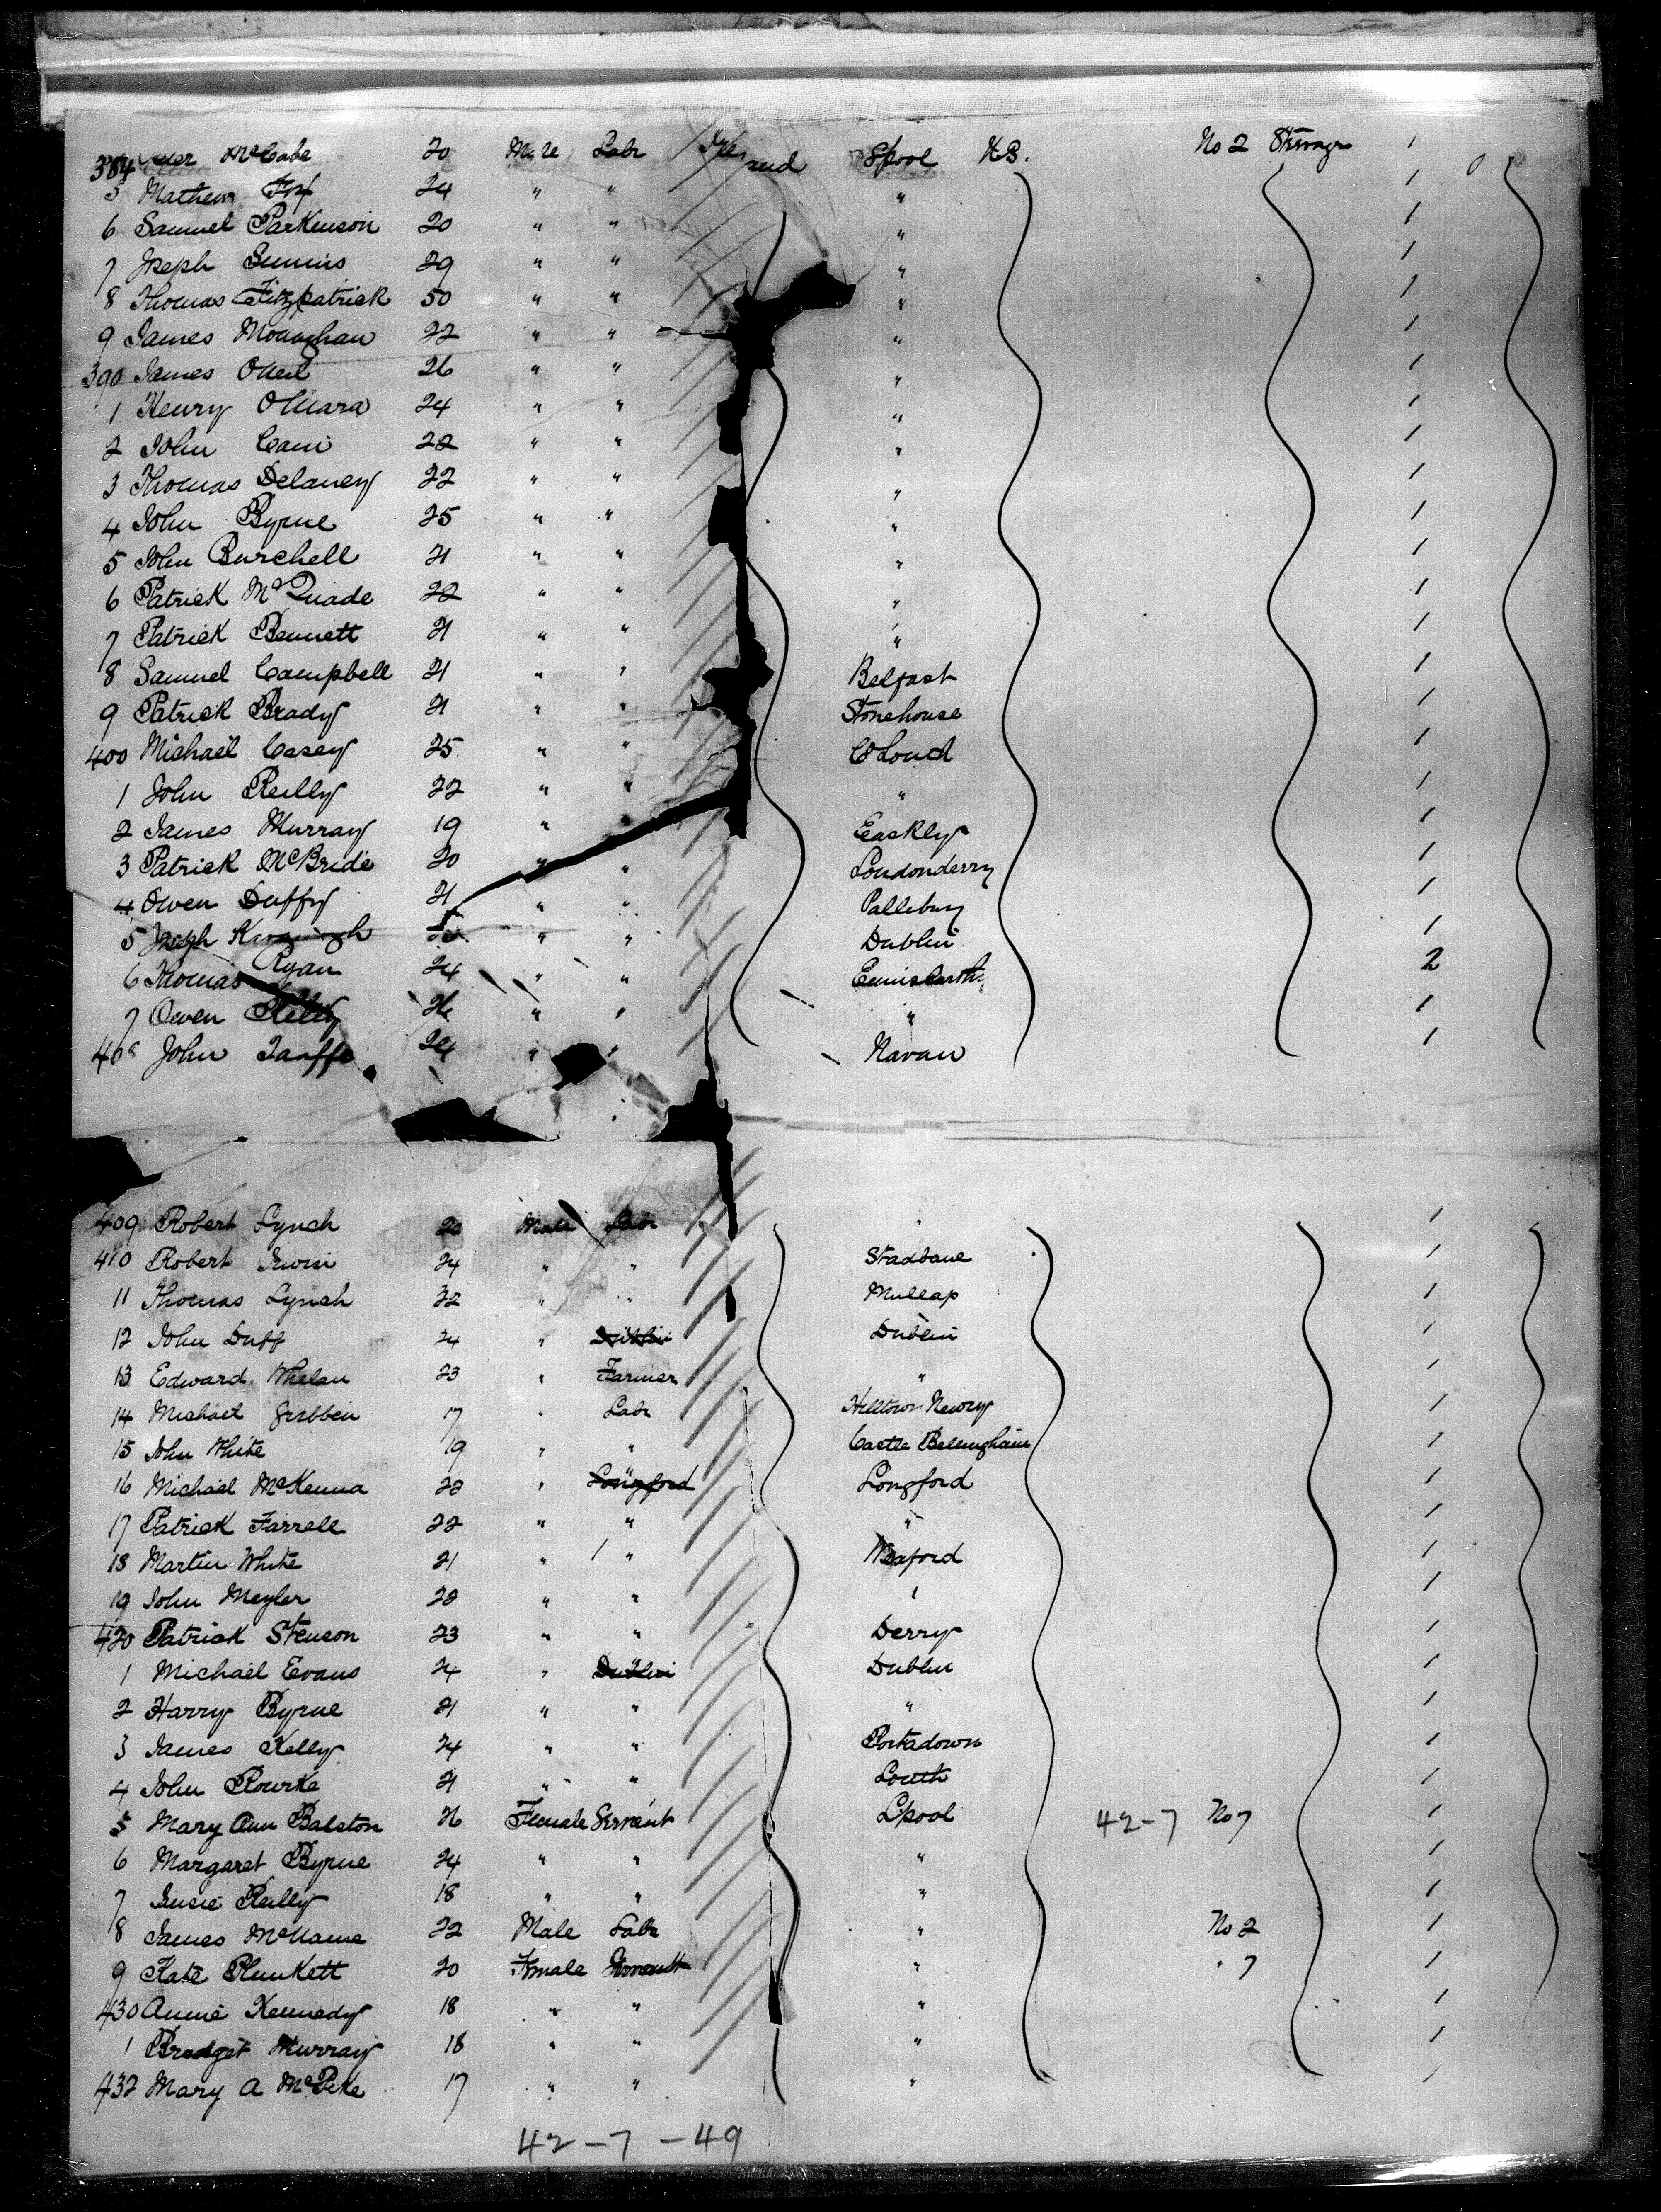 384 McCabe 20 Male Labr Ireland Lpool U.S. No 2 Steerage 1
5 Mathew Fox 24 " " " 1 0
6 Samuel Parkenson 20 " " " 1
7 Joseph 29 " " " 1
8 Thomas Fitzpatrick 50 " " " 1
9 James Monaghan 22 " " " 1
390 James ONeil 26 " " " 1
1 Henry OMara 24 " " " 1
2 John Cain 22 " " " 1
3 Thomas Delaney 22 " " " 1
4 John Byrne 25 " " " 1
5 John Burchell 21 " " " 1
6 Patrick McQuade 22 " " " 1
7 Patrick Bennett 21 " " " 1
8 Samuel Campbell 21 " " Belfast 1
9 Patrick Brady 21 " " Stonehouse 1
400 Michael Casey 25 " " Co Louth 1
1 John Reilly 22 " " " 1
2 James Murray 19 " Easkly 1
3 Patrick McBride 20 " " Londonderry 1
4 Owen Duffy 21 " " 1
5 Joseph Kavanagh " " Dublin 1
6 Thomas Ryan 24 " " 2
7 Owen Reilly 26 " " " 1
408 John Taaffe 24 " " Navan 1
409 Robert Lynch 20 Male Labr " 1
410 Robert Irwin 24 " " Stradbane 1
11 Thomas Lynch 22 " " Mullap 1
12 John Duff 24 " Dublin Dublin 1
13 Edward Whelan 23 " Farmer " 1
14 Michael Gribben 17 " Labr Hilltown Newry 1
15 John White 19 " " Castle Bellingham 1
16 Michael McKenna 22 " Longford Longford 1
17 Patrick Farrell 22 " " " 1
18 Martin White 21 " " Wexford 1
19 John Meyler 22 " " " 1
420 Patrick Stenson 23 " " Derry 1
1 Michael Evans 24 " Dublin Dublin 1
2 Harry Byrne 21 " " " 1
3 James Kelly 24 " " Portadown 1
4 John Rourke 21 " " Louth 1
5 Mary Ann Balston 26 Female Servent Lpool 42-7 No 7 1
6 Margaret Byrne 24 " " " 1
7 Susie Reilly 18 " " " 1
8 James McName 22 Male Labr " No 2 1
9 Kate Plunkett 20 Female Servent " " 7 1
430 Annie Kennedy 18 " " " 1
1 Bredget Murray 18 " " " 1
432 Mary A McPike 17 " " " 1
42-7-49